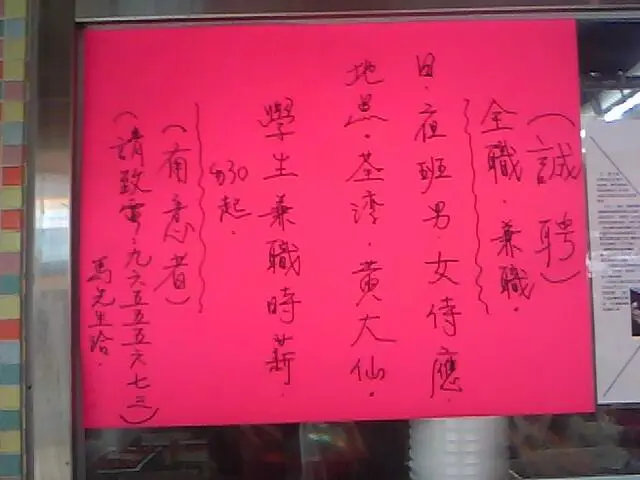 （誠聘）
全職．兼職．
日．夜班男．女侍應．
地奌．荃湾．黄大仙．
學生兼職時薪．
$30起．
（有意者）
（請致電：九六五五五六七三）
馬先生洽．